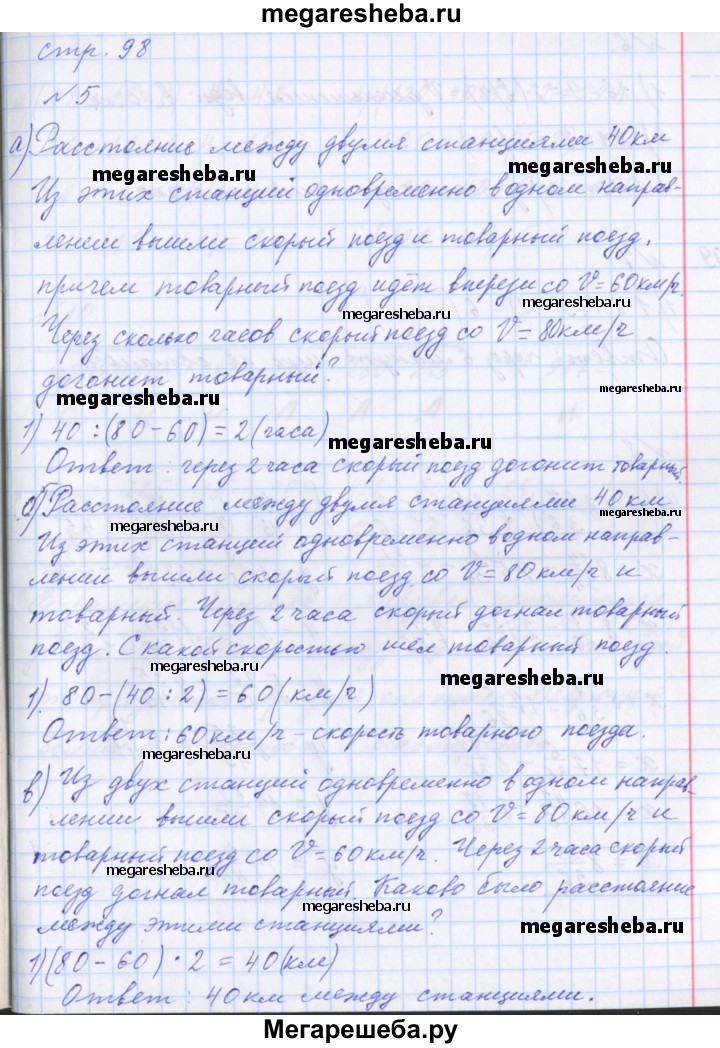 megaresheba.ru
стр. 98
№5
а) Расстояние между двумя станциями 40км
megaresheba.ru
megaresheba.ru
Из этих станций одновременно в одном направ-
лении вышли скорый поезд и товарный поезд,
причем товарный поезд идёт впереди со V=60км/ч.
megaresheba.ru
megaresheba.ru
Через сколько часов скорый поезд со V=80км/ч
догонит товарный?
megaresheba.ru
megaresheba.ru
1) 40 : (80-60) = 2 (часа)
megaresheba.ru
Ответ: через 2 часа скорый поезд догонит товарный.
б) Расстояние между двумя станциями 40 км
megaresheba.ru
megaresheba.ru
Из этих станций одновременно в одном направ-
лении вышли скорый поезд со V=80км/ч и
товарный. Через 2 часа скорый догнал товарный
поезд. С какой скоростью шёл товарный поезд.
megaresheba.ru
megaresheba.ru
1) 80-(40:2)=60(км/ч)
Ответ: 60км/ч-скорость товарного поезда.
megaresheba.ru
в) Из двух станций одновременно в одном направ-
megaresheba.ru
лении вышли скорый поезд со V=80км/ч и
товарный поезд со V=60км/ч. Через 2 часа скорый
поезд догнал товарный. Каково было расстояние
megaresheba.ru
между этими станциями?
megaresheba.ru
1) (80-60) · 2 = 40(км)
megaresheba.ru
Ответ: 40км между станциями.
Мегарешеба.ру